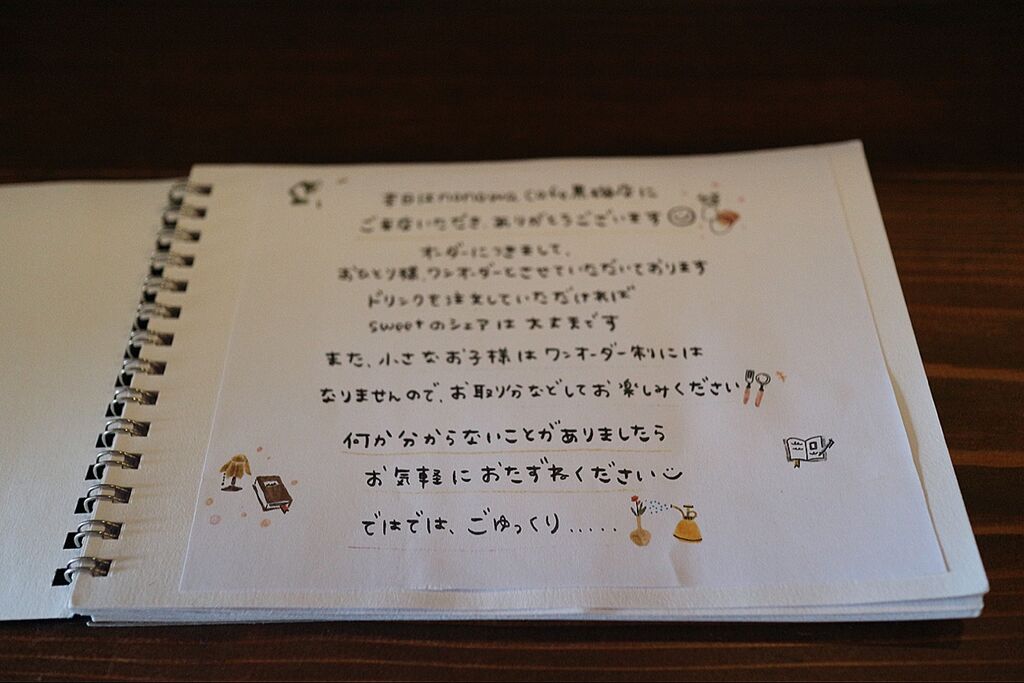 本日はnanawa cafe黒猫店に
ご来店いただき、ありがとうございます
オーダーにつきまして、
おひとり様、ワンオーダーとさせていただいております
ドリンクを注文していただければ
sweetのシェアは大丈夫です
また、小さなお子様はワンオーダー制には
なりませんので、お取り分などしてお楽しみください
何か分からないことがありましたら
お気軽におたずねください
ではでは、ごゆっくり.....